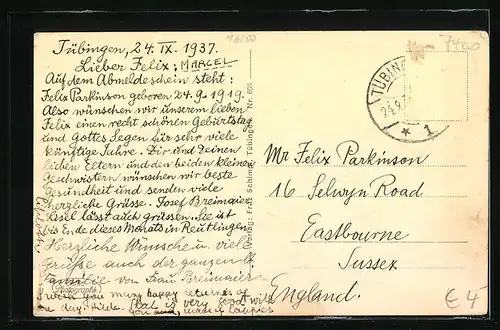 Tübingen, 24. IX. 1937.
Lieber Felix, MARCEL
Auf dem Abmeldeschein steht:
Felix Parkinson geboren 24. 9. 1919.
Also wünschen wir unserem lieben
Felix einen recht schönen Geburtstag
und Gottes Segen für sehr viele
künftige Jahre. Dir und Deinen
lieben Eltern und den beiden kleinen
Geschwistern wünschen wir beste
Gesundheit und senden viele
herzliche Grüsse. Josef Breimaier
lässt auch grüssen. Sie ist
bis Ende dieses Monats in Reutlingen.
Herzliche Wünsche u. viele
Grüße auch der ganzen
Familie von Frau Breimaier
wish you many happy returns of
day.
Photographie
Verlag: Tübingen. Nr. 605
TÜBINGEN
24.9.
* 1
Mr Felix Parkinson
16 Selwyn Road
Eastbourne
Sussex
England.
€4